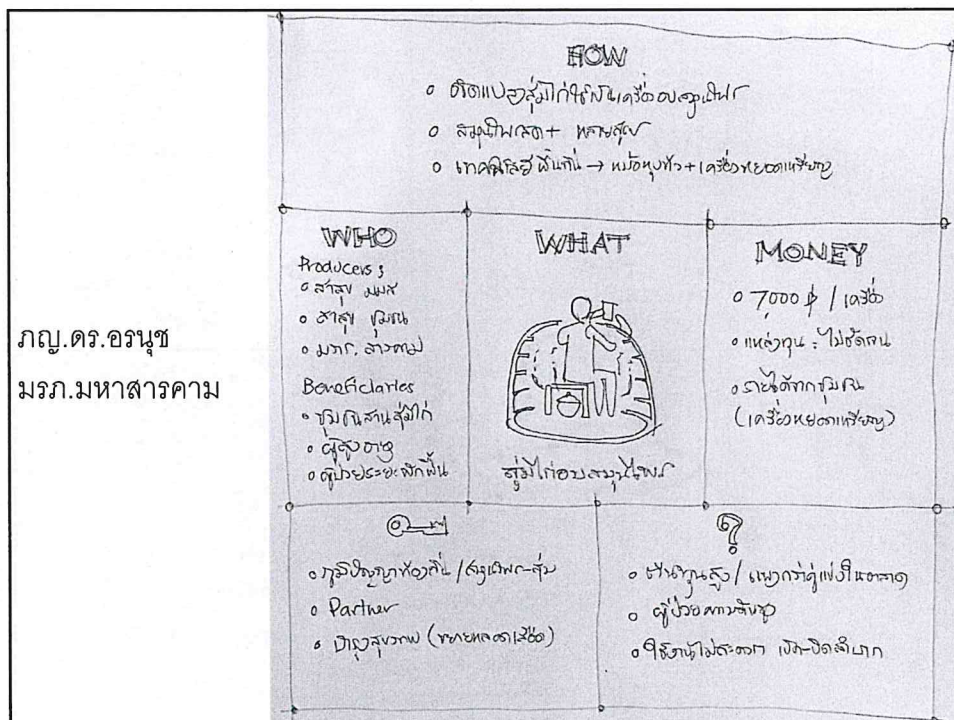 ภญ.ดร.อรนุช
มรภ.มหาสารคาม
HOW
ดัดแปลงสุ่มไก่ใช้เป็นเครื่องอบสมุนไพร
สมุนไพรสด + หลายสูตร
เทคโนโลยีพื้นถิ่น → หม้อหุงข้าว + เครื่องหยอดเหรียญ
WHO
Producers :
สาสุข มมส
สาสุข ชุมชน
มรภ. สารคาม
Beneficiaries
ชุมชนสานสุ่มไก่
ผู้สูงอายุ
ผู้ป่วยระยะพักฟื้น
WHAT
สุ่มไก่อบสมุนไพร
MONEY
7,000 ฿ / เครื่อง
แหล่งทุน : ไม่ชัดเจน
รายได้จากชุมชน
(เครื่องหยอดเหรียญ)
ภูมิปัญญาท้องถิ่น / สมุนไพร-สุ่ม
Partner
บำรุงสุขภาพ (ขยายหลอดเลือด)
?
ต้นทุนสูง / แพงกว่าคู่แข่งในตลาด
ผู้ป่วยความดันสูง
ใช้งานไม่สะดวก เปิด-ปิดลำบาก